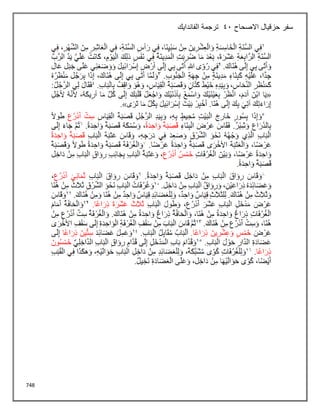 سفر حزقيال الاصحاح ٤٠ ترجمة الفاندايك
١فِي السَّنَةِ الْخَامِسَةِ وَالْعِشْرِينَ مِنْ سَبْيِنَا، فِي رَأْسِ السَّنَةِ، فِي الْعَاشِرِ مِنَ الشَّهْرِ، فِي
السَّنَةِ الرَّابِعَةَ عَشَرَةَ، بَعْدَ مَا ضُرِبَتِ الْمَدِينَةُ فِي نَفْسِ ذلِكَ الْيَوْمِ، كَانَتْ عَلَيَّ يَدُ الرَّبِّ
وَأَتَى بِي إِلَى هُنَاكَ. ٢فِي رُؤَى اللهِ أَتَى بِي إِلَى أَرْضِ إِسْرَائِيلَ وَوَضَعَنِي عَلَى جَبَل عَال
جِدًّا، عَلَيْهِ كَبِنَاءِ مَدِينَةٍ مِنْ جِهَةِ الْجَنُوبِ. ٣وَلَمَّا أَتَى بِي إِلَى هُنَاكَ، إِذَا بِرَجُل مَنْظَرُهُ
كَمَنْظَرِ النُّحَاسِ، وَبِيَدِهِ خَيْطُ كَتَّانٍ وَقَصَبَةُ الْقِيَاسِ، وَهُوَ وَاقِفٌ بِالْبَابِ. ٤فَقَالَ لِي الرَّجُلُ:
«يَا ابْنَ آدَمَ، انْظُرْ بِعَيْنَيْكَ وَاسْمَعْ بِأُذُنَيْكَ وَاجْعَلْ قَلْبَكَ إِلَى كُلِّ مَا أُرِيكَهُ، لأَنَّهُ لأَجْلِ
إِرَاءَتِكَ أُتِيَ بِكَ إِلَى هُنَا. أَخْبِرْ بَيْتَ إِسْرَائِيلَ بِكُلِّ مَا تَرَى».
٥وَإِذَا بِسُورٍ خَارِجَ الْبَيْتِ مُحِيطٍ بِهِ، وَبِيَدِ الرَّجُلِ قَصَبَةُ الْقِيَاسِ سِتُّ أَذْرُعٍ طُولاً
بِالذِّرَاعِ وَشِبْرٌ. فَقَاسَ عَرْضَ الْبِنَاءِ قَصَبَةً وَاحِدَةً، وَسُمْكَهُ قَصَبَةً وَاحِدَةً. ٦ثُمَّ جَاءَ إِلَى
الْبَابِ الَّذِي وَجْهُهُ نَحْوَ الشَّرْقِ وَصَعِدَ فِي دَرَجِهِ، وَقَاسَ عَتَبَةَ الْبَابِ قَصَبَةً وَاحِدَةً
عَرْضًا، وَالْعَتَبَةَ الأُخْرَى قَصَبَةً وَاحِدَةً عَرْضًا. ٧وَالْغُرْفَةَ قَصَبَةً وَاحِدَةً طُولاً وَقَصَبَةً
وَاحِدَةً عَرْضًا، وَبَيْنَ الْغُرُفَاتِ خَمْسُ أَذْرُعٍ، وَعَتَبَةُ الْبَابِ بِجَانِبِ رِوَاقِ الْبَابِ مِنْ دَاخِل
قَصَبَةٌ وَاحِدَةٌ.
٨وَقَاسَ رِوَاقَ الْبَابِ مِنْ دَاخِل قَصَبَةً وَاحِدَةً. ٩وَقَاسَ رِوَاقَ الْبَابِ ثَمَانِيَ أَذْرُعٍ،
وَعَضَائِدَهُ ذِرَاعَيْنِ، وَرِوَاقُ الْبَابِ مِنْ دَاخِل. ١٠وَغُرُفَاتُ الْبَابِ نَحْوَ الشَّرْقِ ثَلاَثٌ مِنْ هُنَا
وَثَلاَثٌ مِنْ هُنَاكَ. لِلثَّلاَثِ قِيَاسٌ وَاحِدٌ، وَلِلْعَضَائِدِ قِيَاسٌ وَاحِدٌ مِنْ هُنَا وَمِنْ هُنَاكَ. ١١وَقَاسَ
عَرْضَ مَدْخَلِ الْبَابِ عَشَرَ أَذْرُعٍ، وَطُولَ الْبَابِ ثَلاَثَ عَشَرَةَ ذِرَاعًا. ١٢وَالْحَافَّةُ أَمَامَ
الْغُرُفَاتِ ذِرَاعٌ وَاحِدَةٌ مِنْ هُنَا، وَالْحَافَّةُ ذِرَاعٌ وَاحِدَةٌ مِنْ هُنَاكَ. وَالْغُرْفَةُ سِتُّ أَذْرُعٍ مِنْ
هُنَا، وَسِتُّ أَذْرُعٍ مِنْ هُنَاكَ. ١٣ثُمَّ قَاسَ الْبَابَ مِنْ سَقْفِ الْغُرْفَةِ الْوَاحِدَةِ إِلَى سَقْفِ الأُخْرَى
عَرْضَ خَمْسٍ وَعِشْرِينَ ذِرَاعًا. اَلْبَابُ مُقَابِلُ الْبَابِ. ١٤وَعَمِلَ عَضَائِدَ سِتِّينَ ذِرَاعًا إِلَى
عَضَادَةِ الدَّارِ حَوْلَ الْبَابِ. ١٥وَقُدَّامَ بَابِ الْمَدْخَلِ إِلَى قُدَّامِ رِوَاقِ الْبَابِ الدَّاخِلِيِّ خَمْسُونَ
ذِرَاعًا. ١٦وَلِلْغُرُفَاتِ كُوًى مُشَبَّكَةٌ، وَلِلْعَضَائِدِ مِنْ دَاخِلِ الْبَابِ حَوَالَيْهِ، وَهكَذَا فِي الْقُبَبِ
أَيْضًا، كُوًى حَوَالَيْهَا مِنْ دَاخِل، وَعَلَى الْعَضَادَةِ نَخِيلٌ.
748